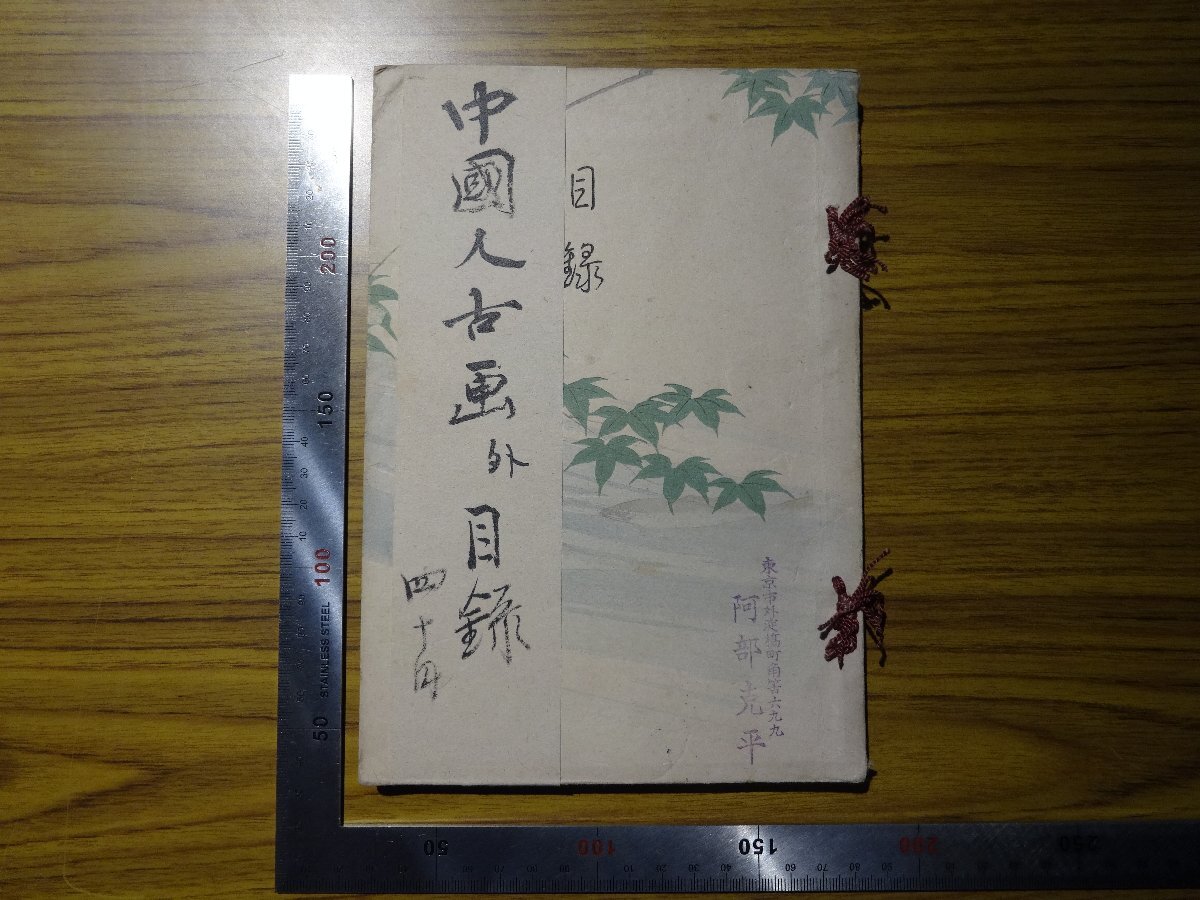 目録
東京市外淀橋町角筈六九九
阿部克平
中國人古画外目録
四十円
200
150
100
50
STAINLESS STEEL
50
100
150
200
250